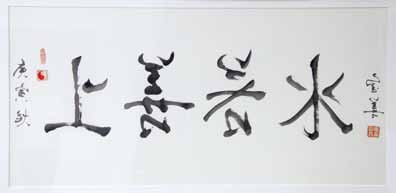 庚寅秋
上善若水